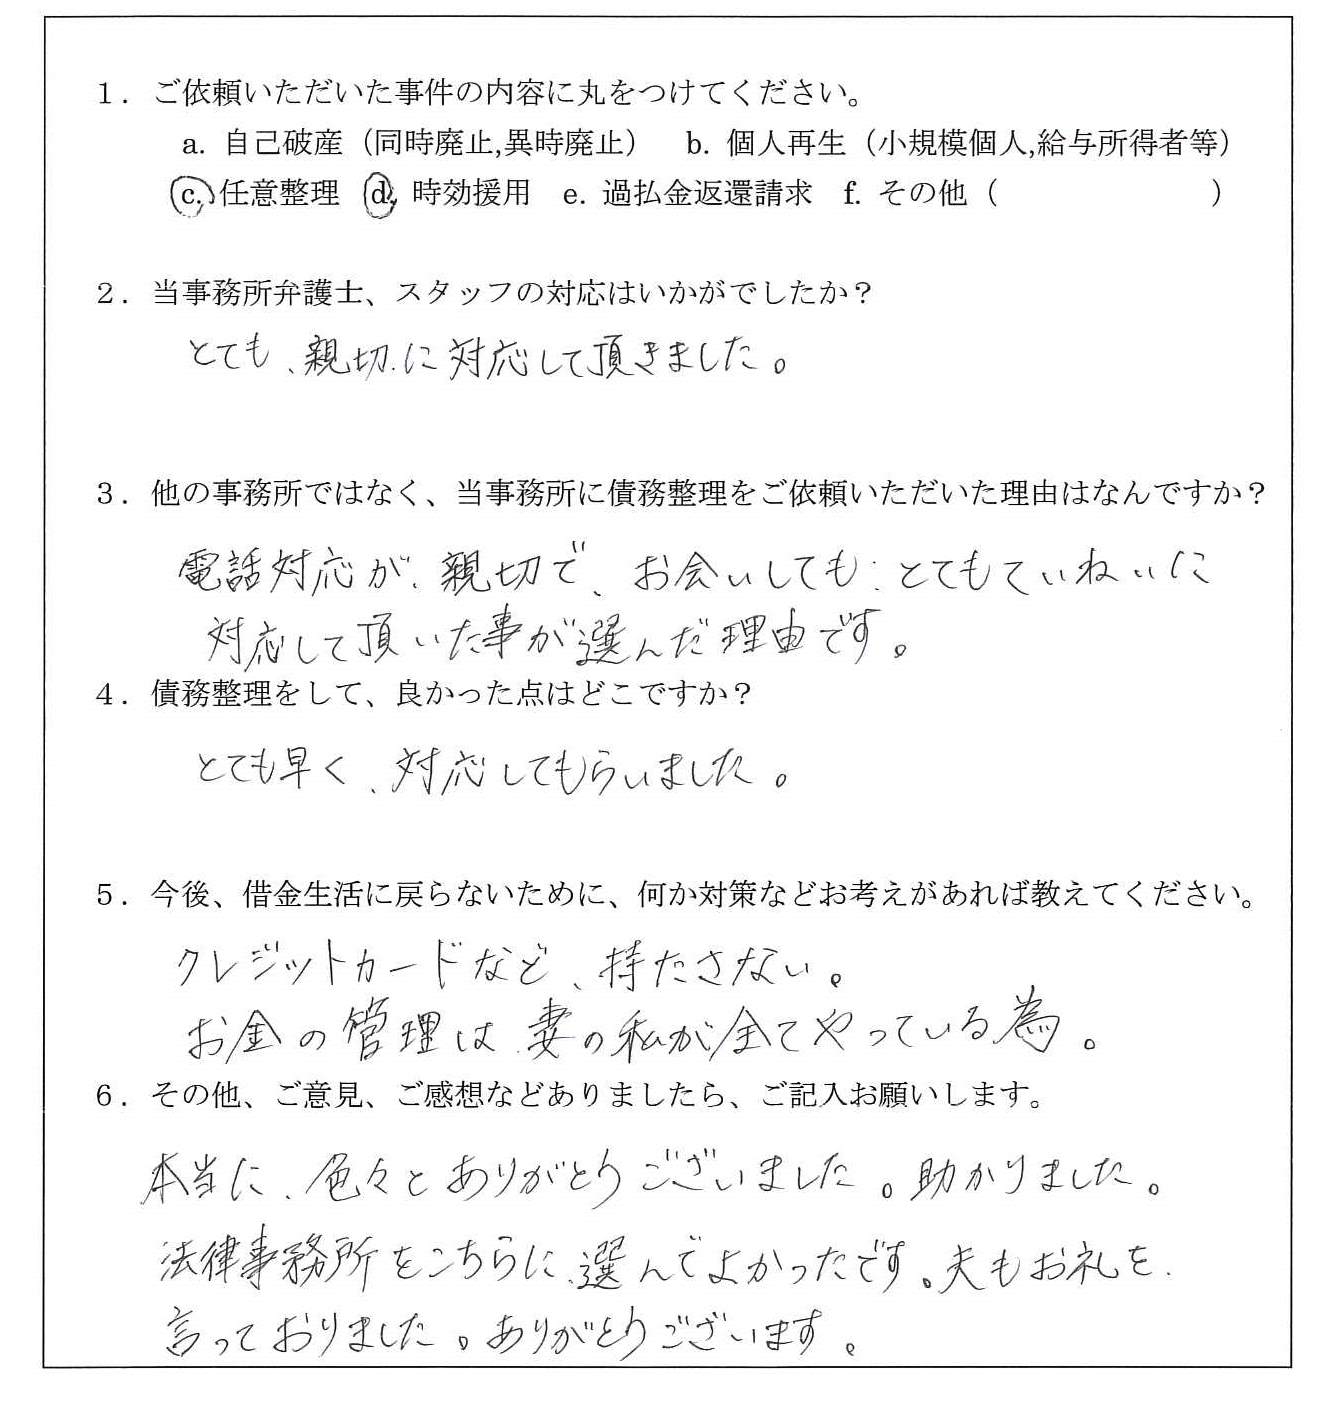 １．ご依頼いただいた事件の内容に丸をつけてください。
a. 自己破産（同時廃止,異時廃止）　b. 個人再生（小規模個人,給与所得者等）
c. 任意整理　d. 時効援用　e. 過払金返還請求　f. その他（　　　　　　　）
２．当事務所弁護士、スタッフの対応はいかがでしたか？
とても、親切に対応して頂きました。
３．他の事務所ではなく、当事務所に債務整理をご依頼いただいた理由はなんですか？
電話対応が、親切で、お会いしても、とてもていねいに
対応して頂いた事が選んだ理由です。
４．債務整理をして、良かった点はどこですか？
とても早く、対応してもらいました。
５．今後、借金生活に戻らないために、何か対策などお考えがあれば教えてください。
クレジットカードなど、持たさない。
お金の管理は、妻の私が全てやっている為。
６．その他、ご意見、ご感想などありましたら、ご記入お願いします。
本当に、色々とありがとうございました。助かりました。
法律事務所をこちらに、選んでよかったです。夫もお礼を、
言っておりました。ありがとうございます。